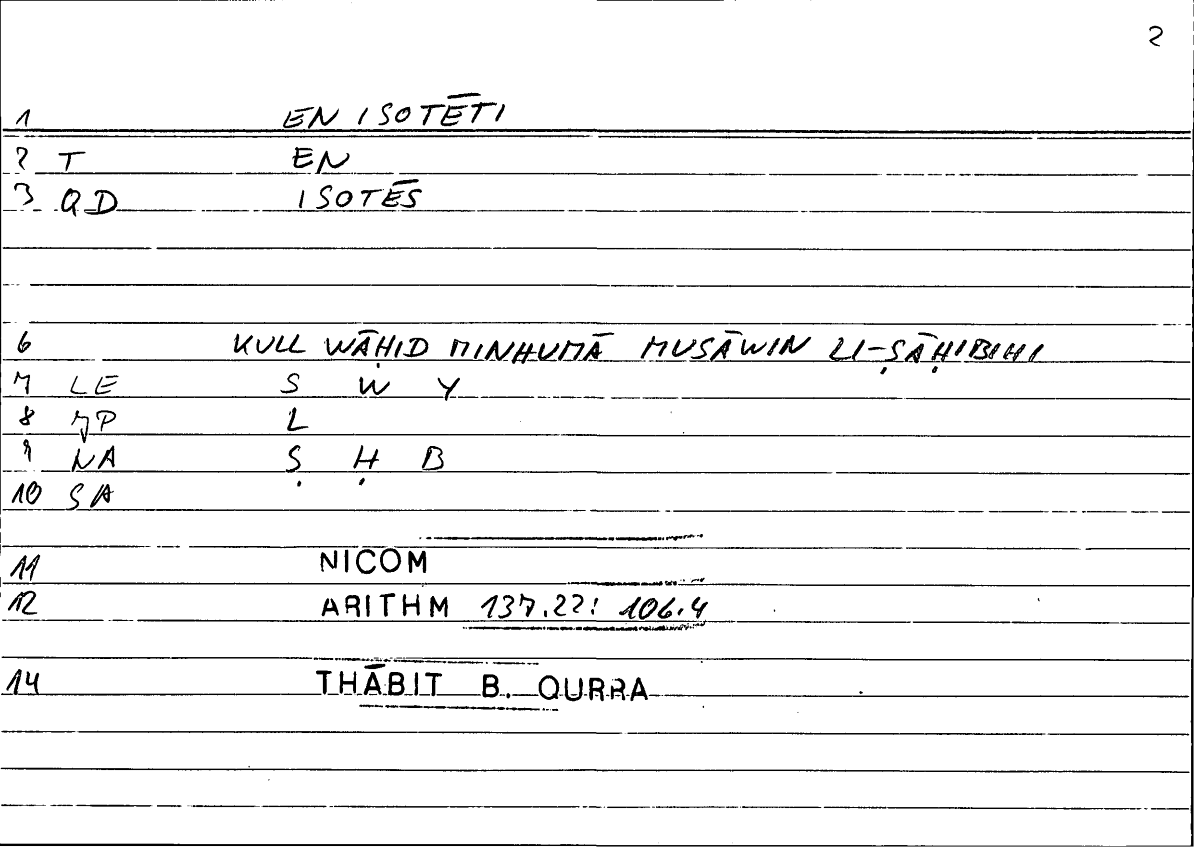 2
1 EN ISOTĒTI
2 T EN
3 QD ISOTĒS
6 KULL WĀḤID MINHUMĀ MUSĀWIN LI-ṢĀḤIBIHI
7 LE S W Y
8 JP L
9 NA Ṣ Ḥ B
10 SA
11 NICOM
12 ARITHM 137.22: 106.4
14 THĀBIT B. QURRA